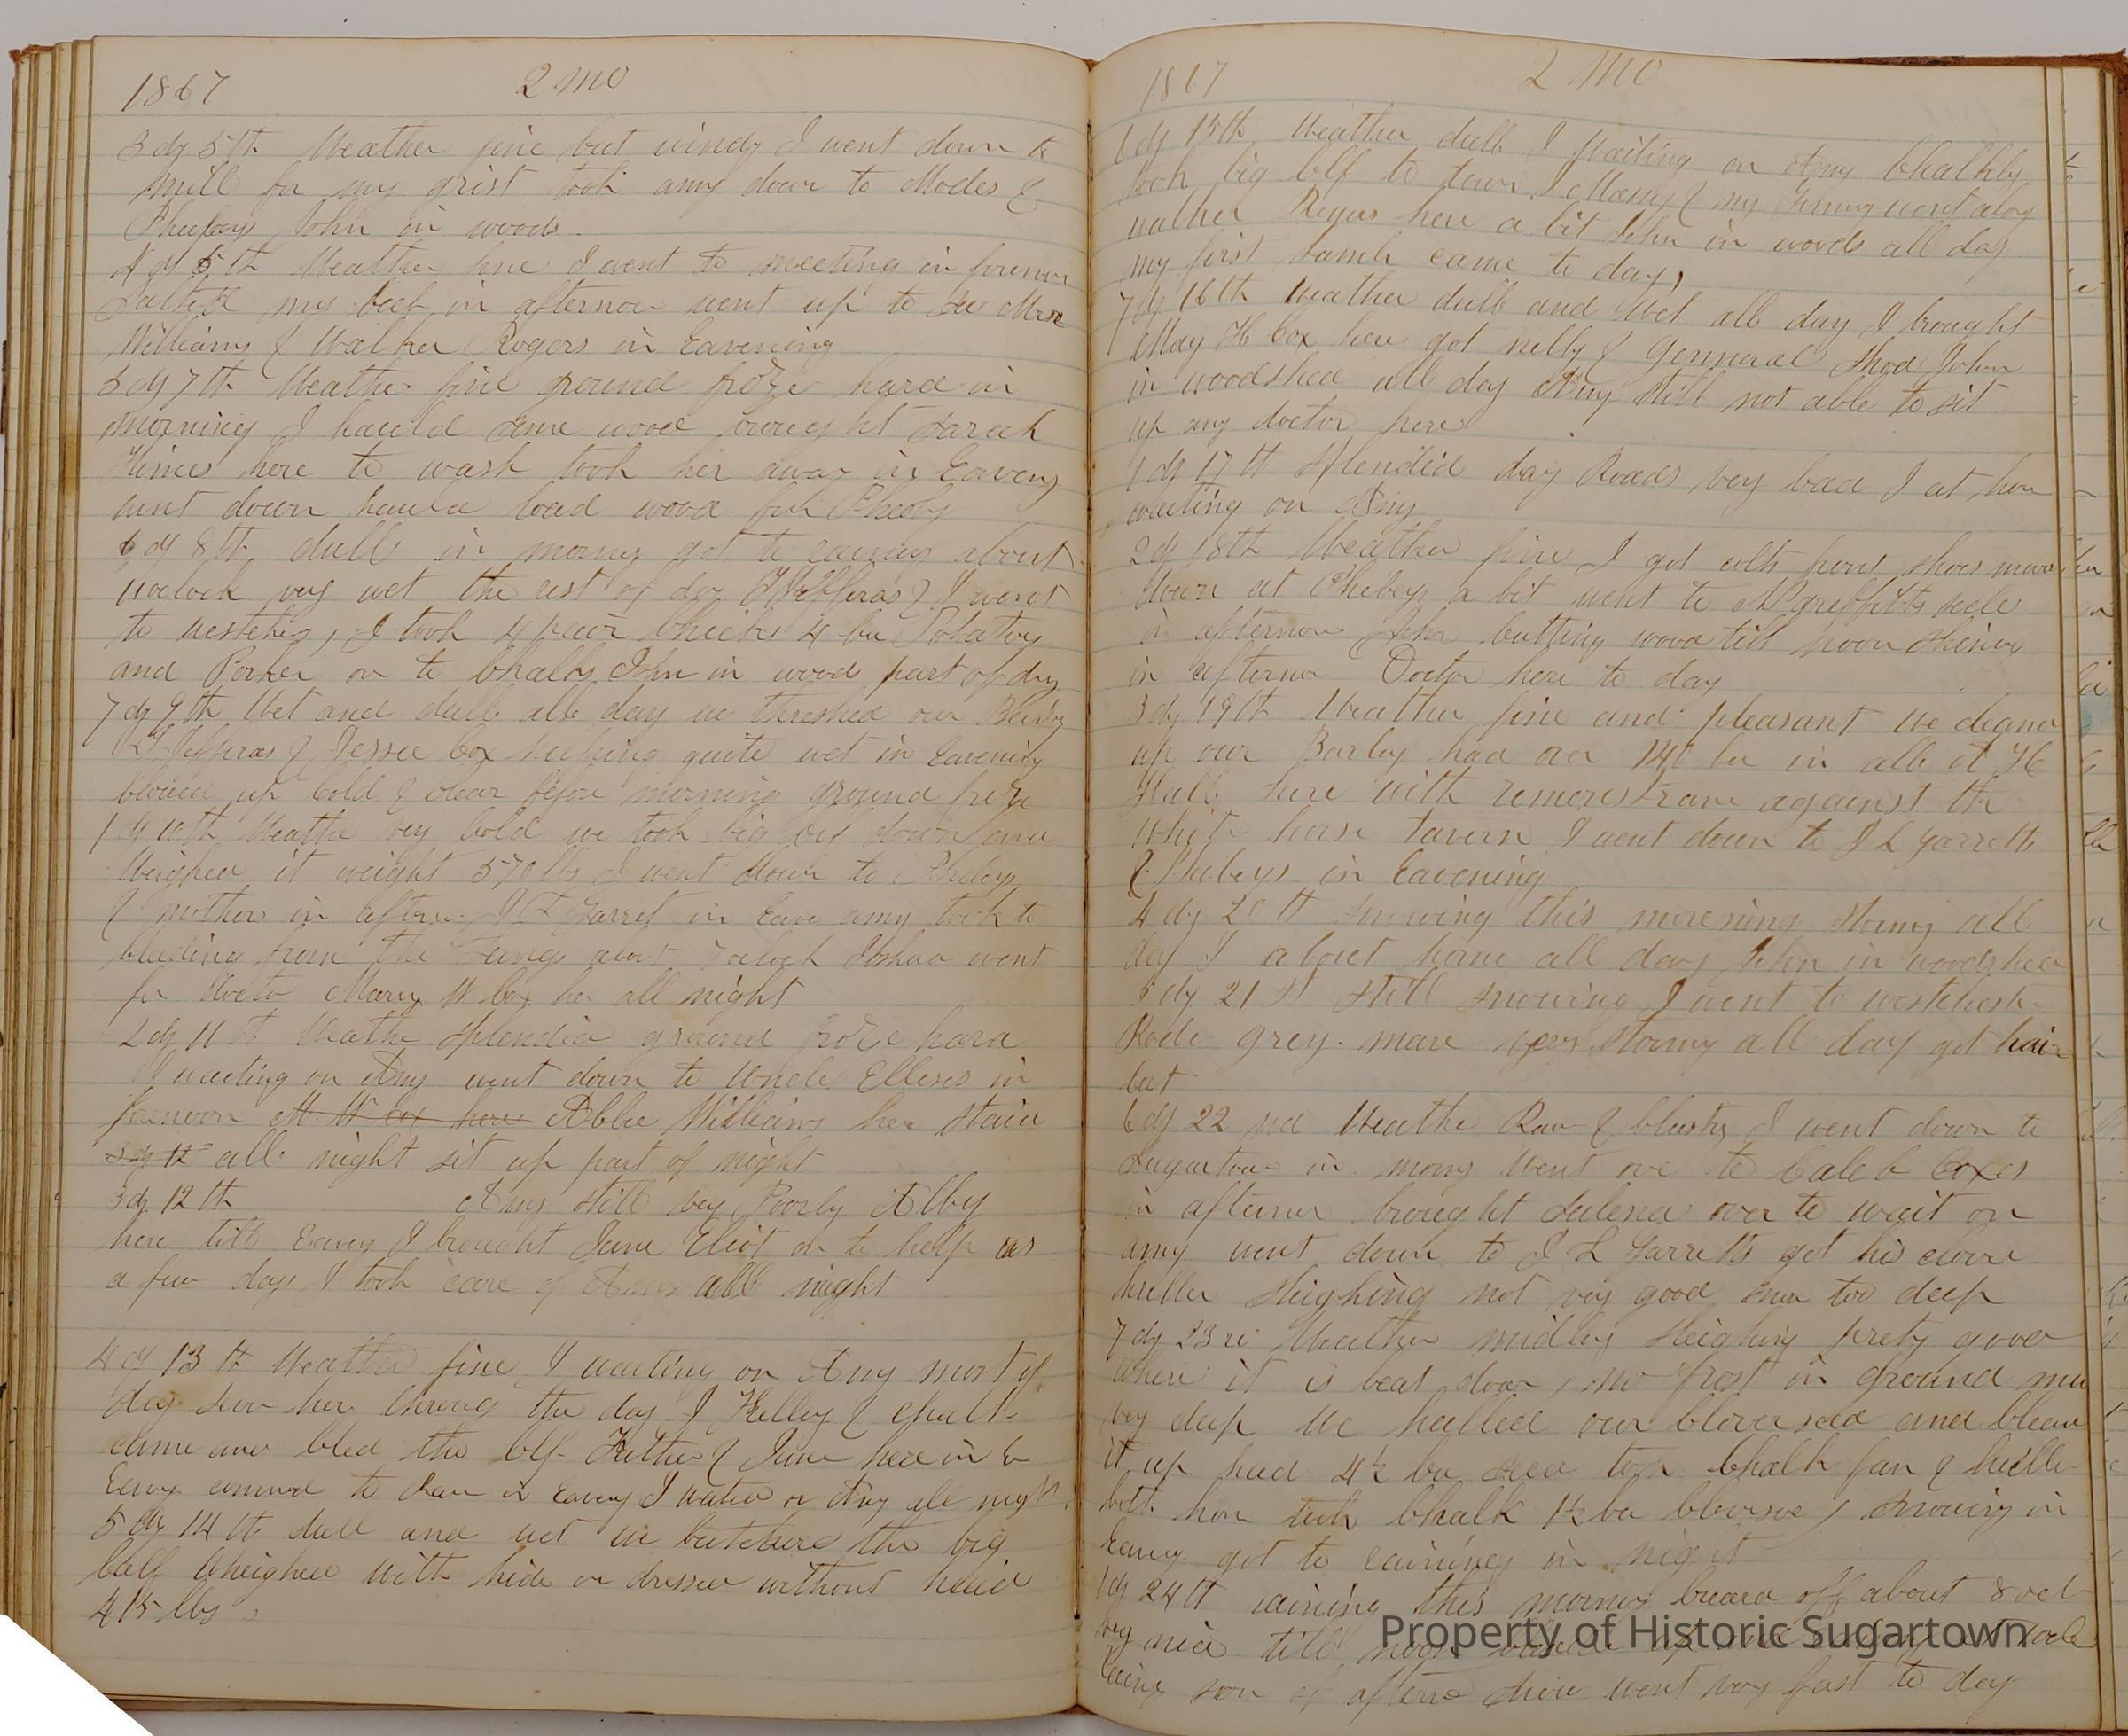 1867 2 mo
3 dy 5th Weather fine but windy I went down to
mill for my grist took amy down to Modes &
Phebeys John in woods
4 dy 6th Weather fine I went to meeting in forenon
Salted my beef in afternon went up to see Mrs
Williams & Walker Rogers in Eavening
5 dy 7th Weather fine ground froze hard in
morning I hauld some wood brought Sarah
Himes here to wash took her away in Eaveng
went down hauld load wood for Pheby
6 dy 8th dull in morng got to raining about
11 oclock very wet the rest of day & I went
to I took 4 pair Chicks 4 bu Potatoy
and Porker on to Chalks John in woods part of day
7 dy 9th Wet and dull all day we threshed our Barley
Jefferas & Jesse Cox helping quite wet in Eavenig
blowed up Cold & Clear before morning ground froze
1 dy 10th Weathe very Cold we took big Clf down and
Weighed it weight 570 lbs I went down to Phebys
& mothers in aftern J L Garret in Eave amy took to
bleeding from the Lungs about 7 oclock Joshua went
for Docto Marry H Cox her all night
2 dy 11th Weathe Splendid ground froze hard
I waiting on Amy went down to Uncle Elleses in
forenoon M H Cox here Abbie Williams her staid
3 dy 12 all night sit up part of night
3 dy 12th Amy still very Poorly Alby
here till Eaveg I brought Jane Eliot on to help us
a few days I took care of Amy all night
4 dy 13th Weather fine I waiting on Amy most of
day her throug the day J Kelley &
came and bled the Clf Father & Jane here in
Eaveg comnd to Ran in Eaveg I waited on Amy all night
5 dy 14th dull and wet we butchered the big
Calf Wheighed with hide on dressed without head
415 lbs
1867 2 mo
6 dy 15th Weather dull I Waiting on Amy Chalkly
took big Clf to town I Marry & my Jenny went along
walker Rogers here a bit John in woods all day
my first Lamb came to day,
7 dy 16th Weather dull and Wet all day I brought
May H Cox here got nelly & Genneral Shod John
in woodshed all day Amy still not able to sit
up any doctor here
1 dy 17th Splendid day Roads very bad I at hom
waiting on Amy
2 dy 18th Weather fine I got colts front shoes movd
down at Phebeys a bit went to N griffiths sele
in afternon John Cutting wood till noon
in afternon Doctor here to day
3 dy 19th Weather fine and pleasant we cleand
up our Barley had over 140 bu in all
Hall here with remonstrane against the
White horse tavern I went down to J L Garretts
& Phebeys in Eavening
4 dy 20th Snowing this morening stormy all
day I about home all day John in woodshed
5 dy 21st still snowing I went to westchest
Rode grey mare very stormy all day got hair
cut
6 dy 22nd Weathe Raw & blustry I went down to
Sugartown in morng Went ove to Caleb Coxes
in afternon brought Salena over to wait on
amy went down to J L Garretts got his clove
huller Sleighing not very good snow too deep
7 dy 23rd Weather sleighing prety good
Where it is beat down, no frost in ground
very deep We hulled our Clover seed and Clean
it up had 4½ bu seed took Chalk fan & huller
both hom took Chalk 1½ bu Cloverseed Snowing in
Eaveg got to raining in night
1 dy 24th raining this morng Cleard off about 8 ocl
very nice till noon
Raing som of aftern snow went very fast to day
Property of Historic Sugartown